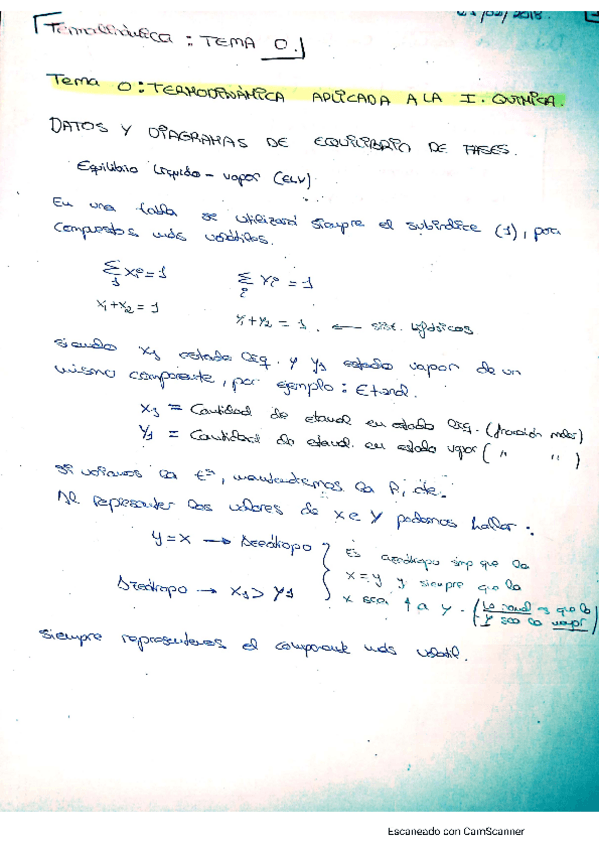 /02/2018.
: TEMA 0.
Tema 0: TERMODINÁMICA APLICADA A LA I. QUÍMICA.
DATOS Y DIAGRAMAS DE EQUILIBRIO DE FASES.
Equilibrio Líquido - vapor (ELV)
En una tabla se utilizará siempre el subíndice (1), para
compuestos más volátiles.
Σ xi = 1 Σ Yi = 1
x1 + x2 = 1
Y1 + Y2 = 1. ← sist. bifásicos
siendo x1 estado líq. y y1 estado vapor de un
mismo componente, por ejemplo: Etanol.
X1 = Cantidad de etanol en estado líq. (fracción molar)
Y1 = Cantidad de etanol en estado vapor ( " " )
Si variamos la tª, manteniendo la P, cte.
Al representar los valores de x e y podemos hallar:
Y = X → Azeótropo
Es azeótropo simp que la
x = y y siempre que la
Azeótropo → X1 > Y1
x sea ↑ a y. (Lo normal es que la
Y sea la vapor)
siempre representaremos el componente más volátil.
Escaneado con CamScanner